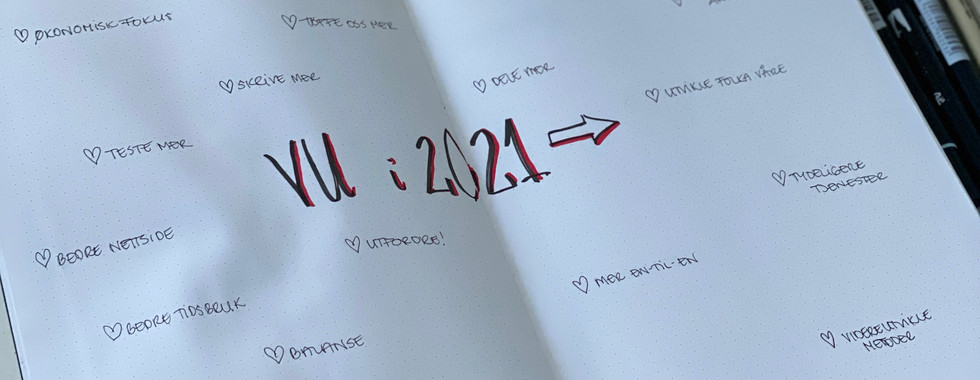 ♡ ØKONOMISK FOKUS
♡ TØFFE OSS MER
♡ SKRIVE MER
♡ DELE MER
♡ UTVIKLE FOLKA VÅRE
♡ TESTE MER
VU i 2021 →
♡ TYDELIGERE
TJENESTER
♡ BEDRE NETTSIDE
♡ UTFORDRE!
♡ MER EN-TIL-EN
♡ BEDRE TIDSBRUK
♡ BALANSE
♡ VIDEREUTVIKLE
METODER